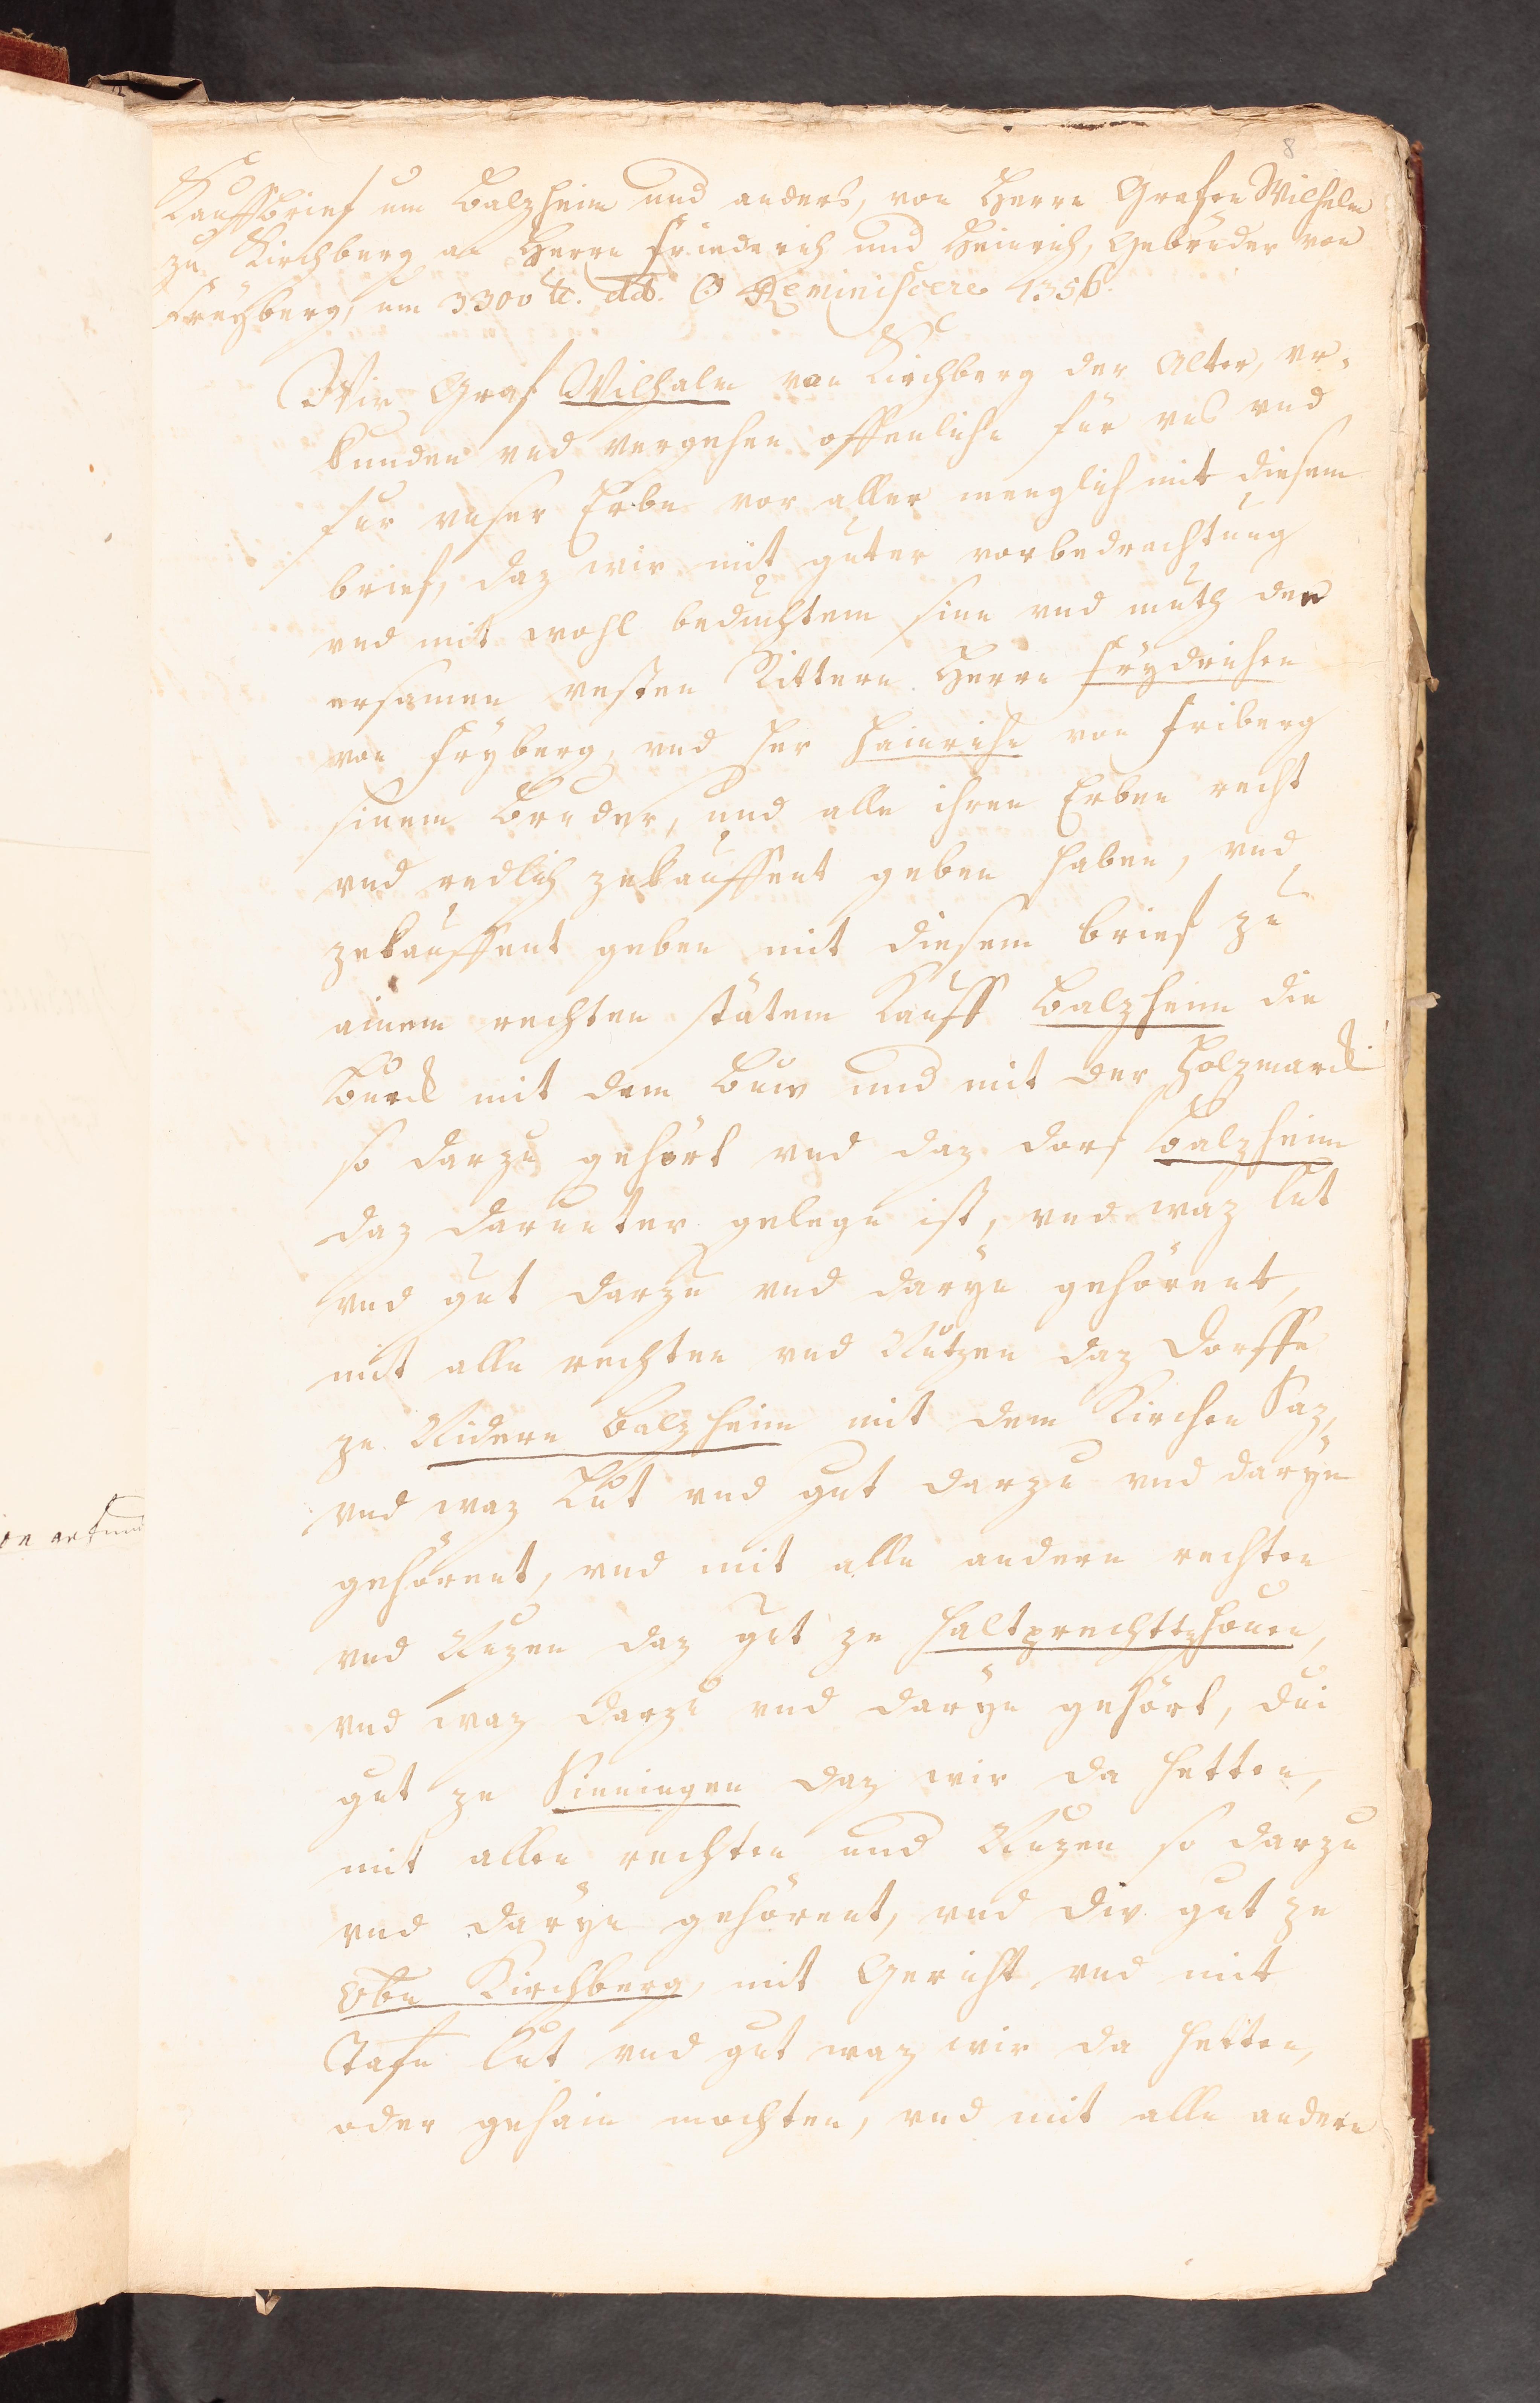 8
Kauffbrief um Balzheim und anders, von Herrn Grafen Wilhelm
zu Kirchberg an Herrn Friederich und Heinrich, Gebrüder von
Freyberg, um 3300 ℔. dd. ☉ Reminiscere 1356.
Wir Graf Wilhalm von Kirchberg der Alter, ver¬
kunden vnd vergehen offenlichen für vns vnd
für vnser Erbe vor aller menglich mit diesem
brief, daz wir mit guter vorbedrachtung
vnd mit wohl beduchtem sinn vnd muth den
ersamen vesten Rittern Herrn Frydrichen
von Fryberg, vnd her Hainrichn von Friberg
sinem Bruder, und alle ihren Erben recht
vnd redlich zekauffent geben haben, vnd
zekauffent geben mit diesem brief zu
ainem rechten stätem Kauff Balzheim die
Burck mit dem Buw und mit der Holzmarck
so darzu gehört vnd daz dorf Balzheim
daz darunter gelegn ist, vnd waz lut
vnd gut darzu vnd daryn gehörent,
mit alle rechten vnd Nutzen daz Dorffe
ze Nidern Balzheim mit dem Kirchen Saz,
vnd waz Lut vnd gut darzu vnd daryn
gehörent, vnd mit alle andern rechten
vnd Nuzen daz gut ze Haltprechttzhouen,
vnd waz darzu vnd daryn gehört, dui
gut ze Sinningen daz wir da hetten,
mit allen rechten und Nuzen so darzu
vnd daryn gehörent, vnd div gut ze
Obn Kirchberg, mit Gericht vnd mit
Tafn lut vnd gut waz wir da hetten,
oder gehain mochten, vnd mit alle andern